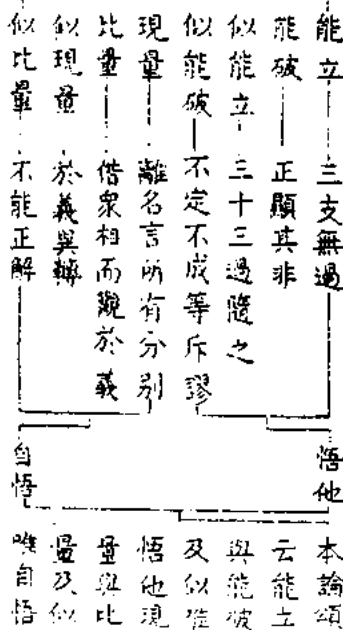 能立 三支無過
能破 正顯其非
似能立 三十三過隨之
似能破 不定不成等斥謬
現量 離名言所有分別
比量 偕眾相而觀於義
似現量 於義異轉
似比量 不能正解
悟他
自悟
本論頌
云能立
與能破
及似唯
悟他現
量與比
量及似
唯自悟